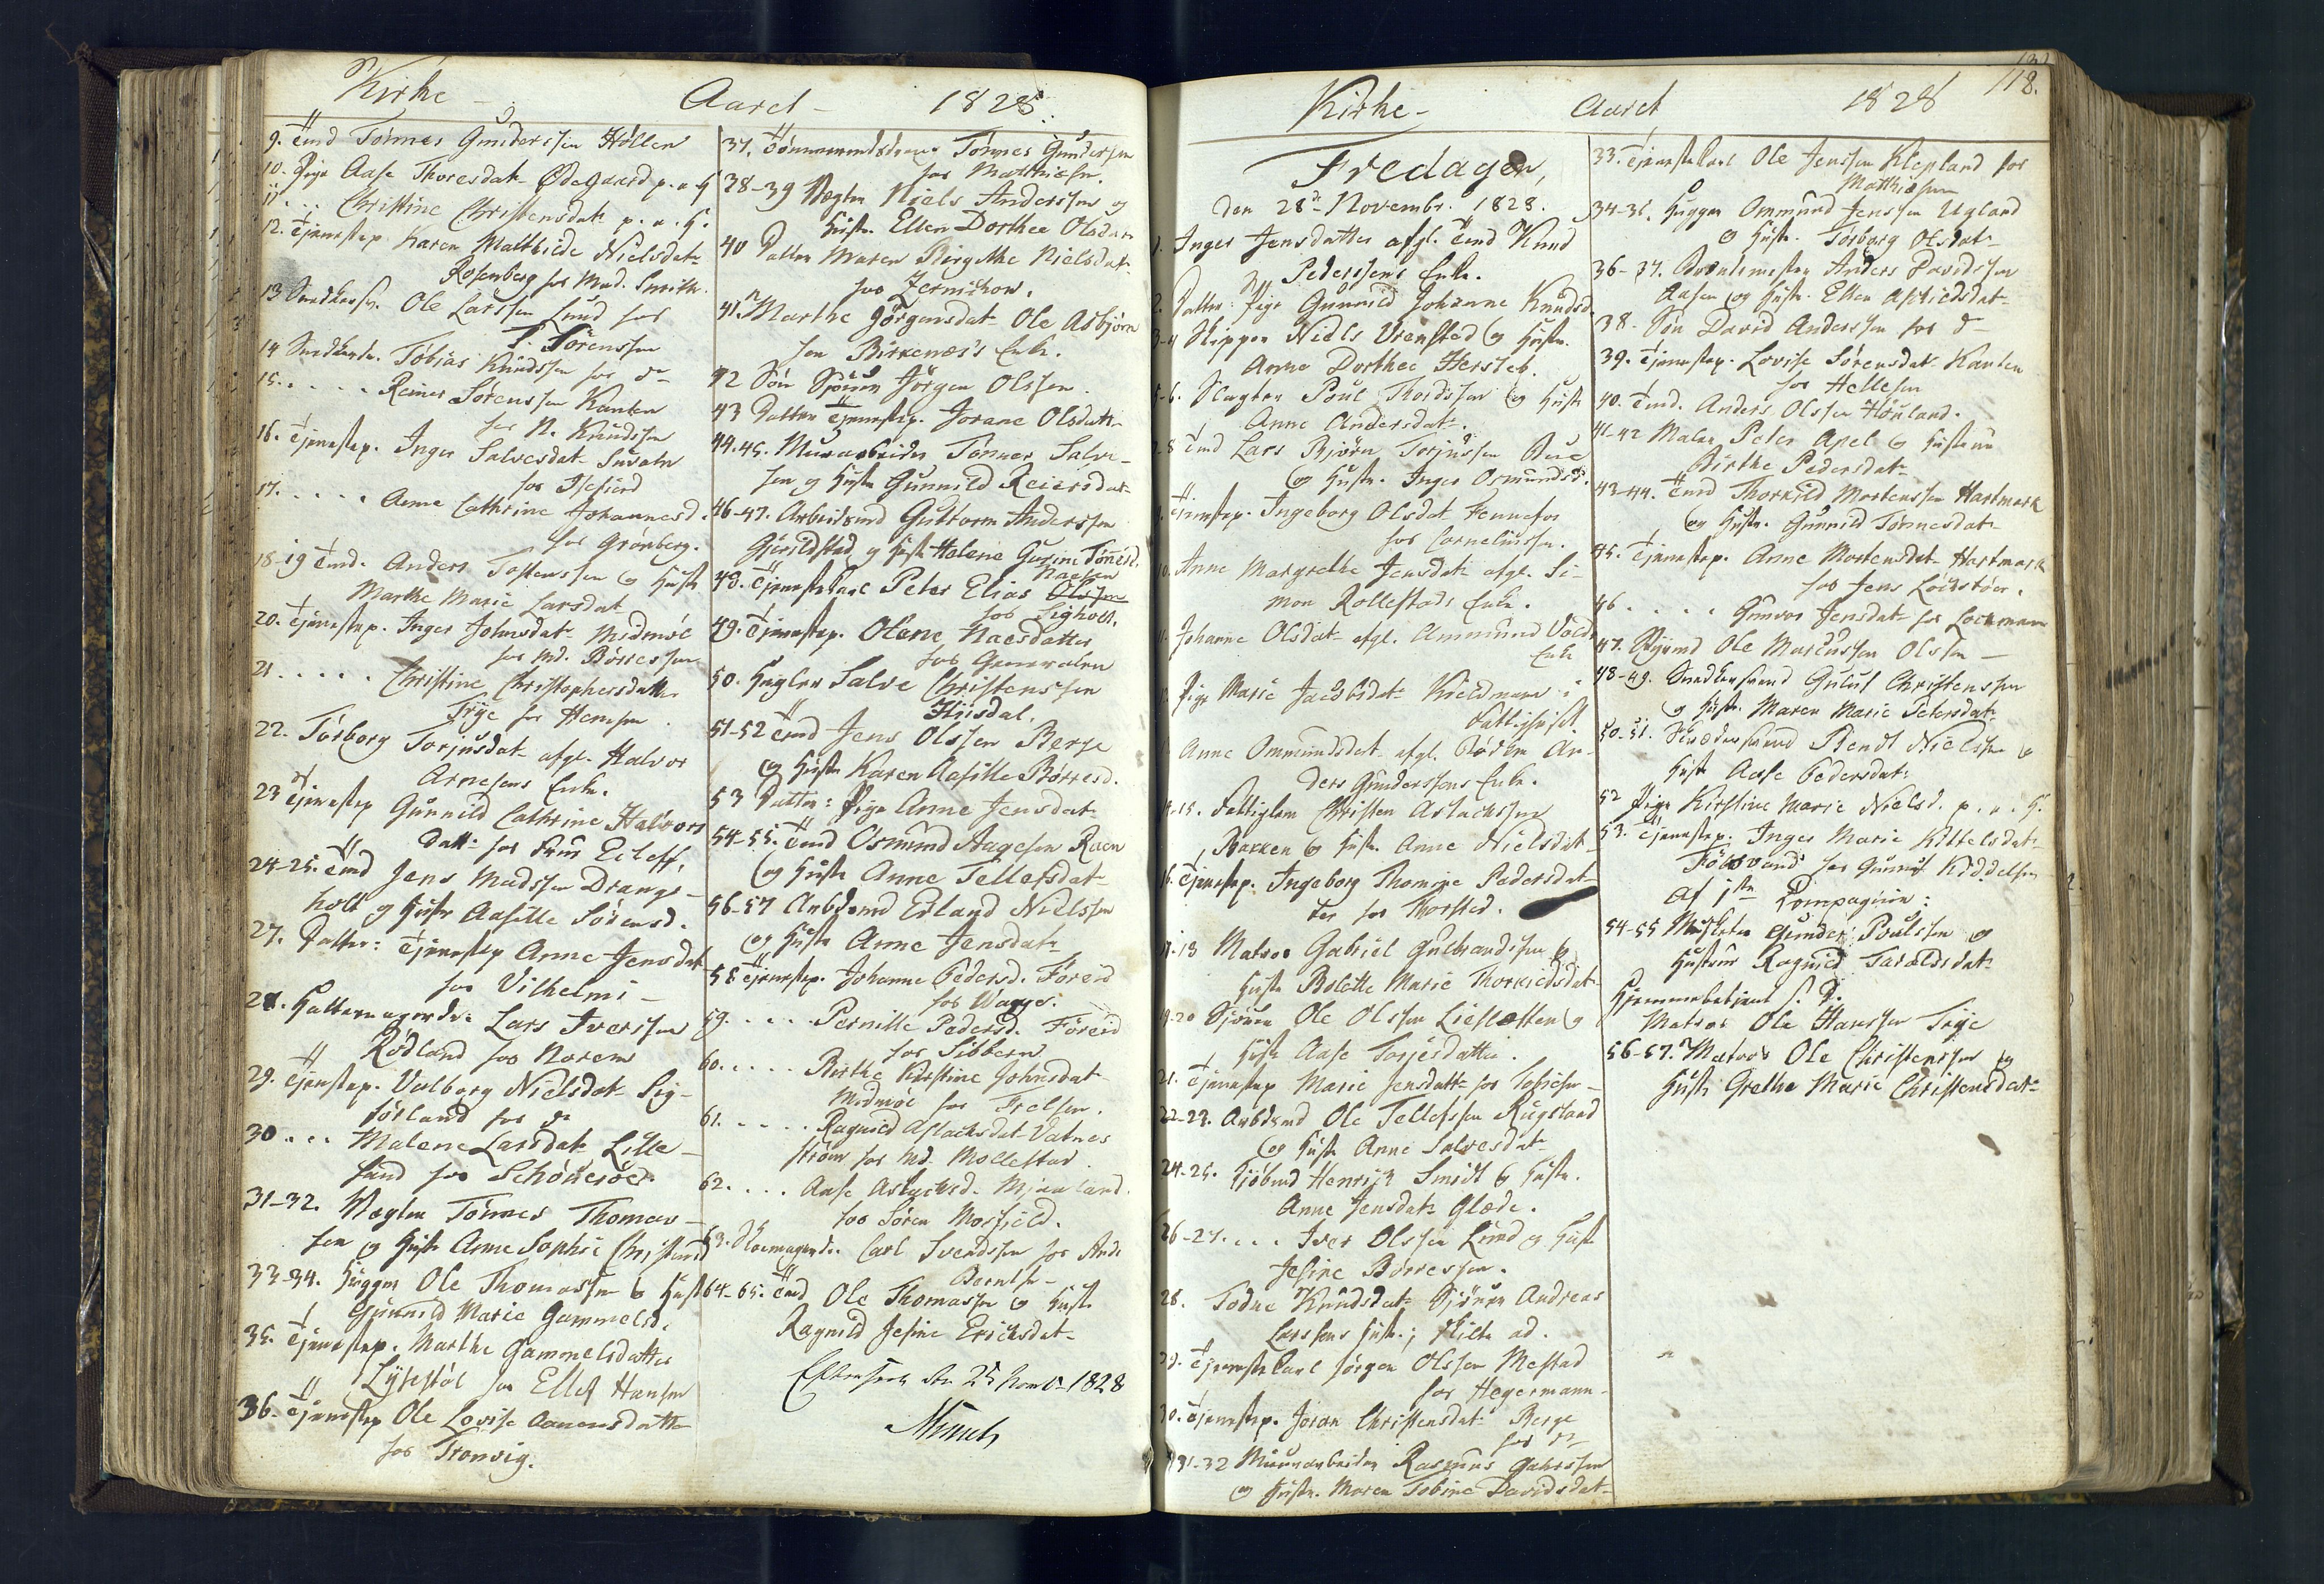 Kirke - Aaret - 1828.
9. Tmd Tönnes Gundersen Höllen
10. Pige Aase Thoresdatr Ødegaard p. e. H
11 . . . Christine Christensdatr p. e. H.
12. Tjenestep. Karen Mathilde Nielsdatr
Rosenberg hos Mad. Smith.
13 Snedkersv. Ole Larssen Lund hos
T. Sörenssen
14 Snedkerdr. Tobias Knudssen hos do
15. . . . . Reiner Sörenssen Kanten
hos N. Knudssen
16. Tjenestep. Inger Salvesdatr
hos Isefierd
17. . . . . Anne Cathrine Johannesd.
hos Grönberg.
18-19 Tmd. Anders Tostenssen og Hustr
Marthe Marie Larsdat
20. Tjenestep. Inger Johnsdatr Midmöe
hos Md. Börresen
21 . . . . . Christine Christophersdatter
Trye hos Hemsen.
22. Torborg Torjusdatr afgl. Halvor
Arnesens Enke.
23 Tjenestep Gunnild Cathrine Halvors
datr hos Frue Eeleff.
24-25. Tmd Jens Madssen Drangs-
holt og Hustr Aasille Sörensd.
27. Datter: Tjenestep Anne Jensdatr
hos Vilhelmi -
28. Hattemagerdr. Lars Iverssen
Rödland hos Norem
29. Tjenstep. Valborg Nielsdatr Sig-
förland hos do
30 . . . Malene Larsdatr Lille-
sand hos
31-32. Vægter Tönnes Thomas-
sen og Hustr Anne Sophie Christensd
33-34. Hugger Ole Thomassen og Hustr
Gunnild Marie Gammelsd.
35. Tjenestep. Marthe Gammelsdatter
Lystöl hos Ellef Hansen
36. Tjenestep Ole Lovise Aanensdatter
hos Tronvig.
37. Tömmermandsdreng Tönnes Gundersen
hos Matthiesen.
38-39 Vægter Niels Anderssen og
Hustr. Ellen Dorthea Olsdatr
40 Datter Maren Birgithe Nielsdatr
hos Jernichow.
41. Marthe Jörgensdatr Ole Asbjörn
sen Birkenæs's Enke.
42 Sön Sjömn Jörgen Olssen
43 Datter Tjenestep. Jorane Olsdattr
44.45. Murarbeider Tönnes Salve-
sen og Hustr Gunnild Reiersdatr
46-47. Arbeidsmd Guttorm Anderssen
Gjerildstad og Hustr Helene Gurine Tönnesd.
Naesen
48. Tjenestekarl Peter Elias Olssen
hos Sigholt.
49. Tjenestep. Olene Naesdatter
hos Generalen
50. Hugler Salve Christenssen
Hiisdal.
51-52 Tmd Jens Olssen Berge
og Hustr Karen Aasille Börresd.
53 Datter: Pige Anne Jensdatr
54-55. Tmd Osmund Aagesen Raen
og Hustr Anne Tellefsdatr
56-57 Arbdsmd Erland Nielssen
og Hustr Anne Jensdatr
58 Tjenestep. Johanne Pedersd. Föreid
hos Wayge.
59. . . . . Pernille Pedersd. Föreid
hos Sibbern
60. . . . Birthe Kirstine Johnsdatr
Midmöe hos Frelsen.
61. . . . . Ragnild Aslacksdatr Vatnes
ström hos Md. Mollestad.
62. . . . Aase Aslacksd. Mjaaland.
hos Sören Morfield.
63. Skomagerdr. Carl Svendssen hos And.
Berntsen -
64-65. Tmd Ole Thomassen og Hustr
Ragnild Josine Ericksdatr
Efterseet den 25 Novbr 1828
Munch
Kirke - Aaret 1828 118.
Fredagen,
den 28de Novembr. 1828.
1. Inger Jensdatter afgl. Tmd Knud
Pederssens Enke.
2. Datter: Pige Gunnild Johanne Knudsd
3-4 Skipper Niels Vrensted og Hustr.
Anne Dorthea Hersleb.
5-6. Slagter Poul Thordssen og Hustr
Anne Andersdatr.
7-8 Tmd Lars Björn Torjussen Bue
og Hustr. Inger Osmundsd.
9. Tjenestep. Ingeborg Olsdat Fennefos
hos Corneliussen.
10. Anne Margrethe Jensdatr afgl. Si-
mon Rollestads Enke.
11. Johanne Olsdatr afgl. Ammund
Enke
12. Pige Marie Jacobsdatr Kieldmann i
Fattighuset.
13 Anne Ommundsdatr afgl. Bödker An-
ders Gunderssens Enke.
14-15. Fattiglem Christen Aslackssen
Bakken og Hustr. Anne Nielsdatr
16. Tjenestep. Ingeborg Thomine Pedersdat-
ter hos Thorsted.
17-18 Matros Gabriel Gulbrandssen og
Hustr Bolette Marie Thorkildsdatr
19-20 Sjömn Ole Olssen Liesletten og
Hustr Aase Torjesdatter.
21. Tjenestep Marie Jensdattr hos Tobiesen -
22-23. Arbdsmd Ole Tellefssen Rugsland
og Hustr Anne Salvesdatr
24-25. Kjöbmd Henrik Smidt og Hustr.
Anne Jensdatr Glæde.
26-27. . . Iver Olssen Lund og Hustr
Josine Börressen.
28. Todne Knudsdatr Sjömn Andreas
Larssens Hustr.; skilte ad.
29. Tjenestekarl Jörgen Olssen Mestad
hos Hegermann.
30. Tjenestep. Joran Christensdatr Berge
hos do
31-32 Muurarbeider Rasmus Gabrssen
og Hustr. Maren Tobine Davidsdatr
33. Tjenestekarl Ole Jenssen Klepland hos
Matthiesen
34-35. Hugger Ommund Jenssen Ugland
og Hustr. Torborg Olsdatr
36-37. Brandmester Anders Davidssen
Aasen og Hustr. Ellen Aslachsdatr
38. Sön David Anderssen hos do
39. Tjenestep. Lovise Sörensdatr Kanten
hos Hellesen
40. Tmd. Anders Olssen Hönland.
41-42 Maler Peter Apel og Hustrue
Birthe Pedersdatr
43-44. Tmd Thorkild Mortenssen Hartmark
og Hustr. Gunnild Tönnesdatr
45. Tjenestep. Anne Mortensdatr Hartmark
hos Jens Lockstöer.
46 . . . . Gunvor Jensdatr hos Lochmann
47. Rygmd Ole Marcussen Olssen -
48-49. Snedkersvend Gulut Christenssen
og Hustr. Maren Marie Petersdatr
50-51. Skrædersvend Bendt Nielssen og
Hustr Aase Pedersdatr
52 Pige Kirstine Marie Nielsd. p. e. H.
53. Tjenestep. Inger Marie Kittelsdatr
hos Gunnuf Kiddelsen
Af 1ste Compagnie:
54-55 Musketer Gunder Poulssen og
Hustrue Ragnild Taraldsdatr
Hjemmebetjent s. D.
Matros Ole Hanssen Trye
56-57. Matros Ole Christenssen og
Hustr Grethe Marie Christensdatr